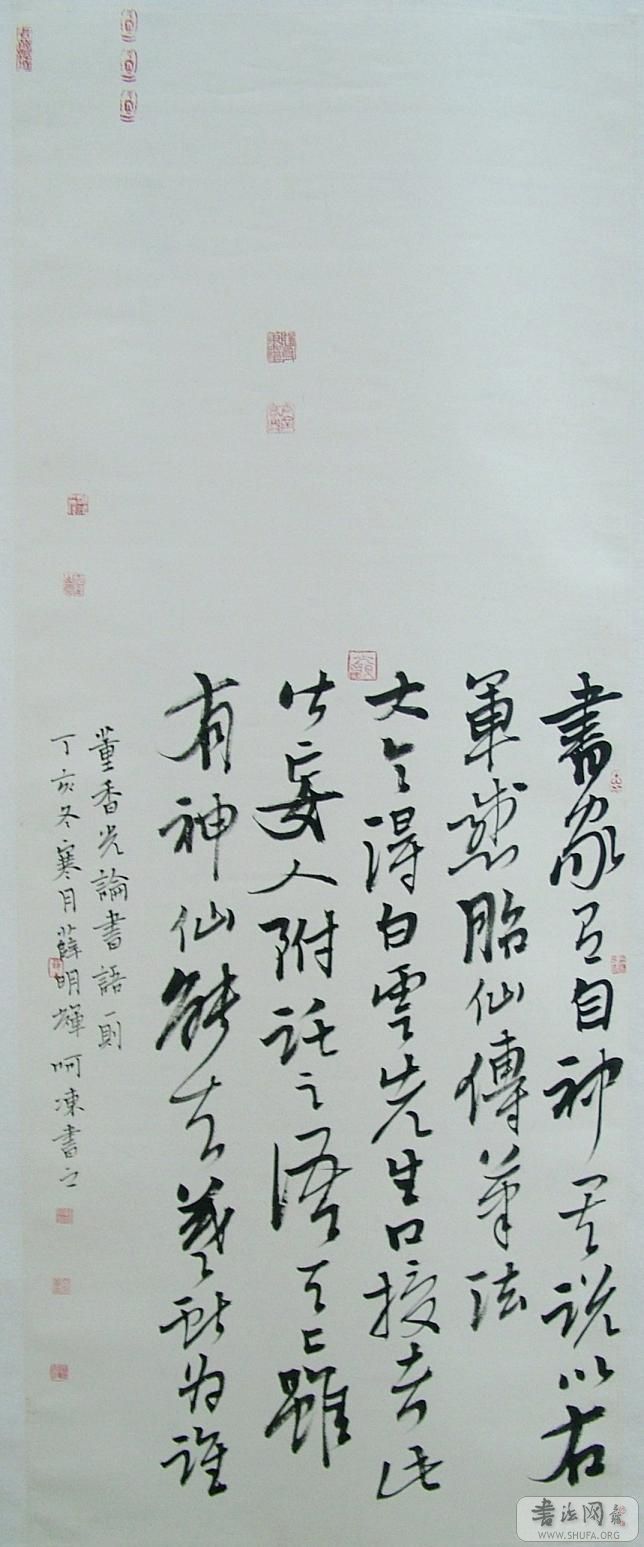 書家有自神其説以右
軍感胎仙傳筆法
大令得白雲先生口授者此
皆妄人附託之語天上雖
有神仙能知羲獻为誰
董香光論書語一則
丁亥冬寒月薛明輝呵凍書之
书法网
WWW.SHUFA.ORG